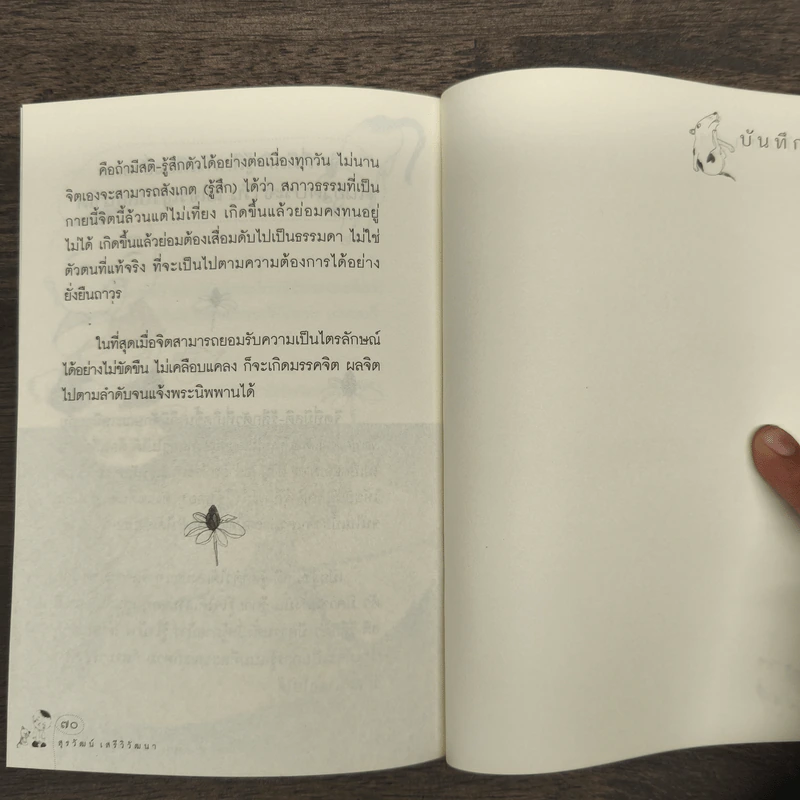 คือถ้ามีสติ-รู้สึกตัวได้อย่างต่อเนื่องทุกวัน ไม่นาน
จิตเองจะสามารถสังเกต (รู้สึก) ได้ว่า สภาวธรรมที่เป็น
กายนี้จิตนี้ล้วนแต่ไม่เที่ยง เกิดขึ้นแล้วย่อมคงทนอยู่
ไม่ได้ เกิดขึ้นแล้วย่อมต้องเสื่อมดับไปเป็นธรรมดา ไม่ใช่
ตัวตนที่แท้จริง ที่จะเป็นไปตามความต้องการได้อย่าง
ยั่งยืนถาวร
ในที่สุดเมื่อจิตสามารถยอมรับความเป็นไตรลักษณ์
ได้อย่างไม่ขัดขืน ไม่เคลือบแคลง ก็จะเกิดมรรคจิต ผลจิต
ไปตามลำดับจนแจ้งพระนิพพานได้
๗๐
สุรวัฒน์ เสรีวิวัฒนา
บันทึก